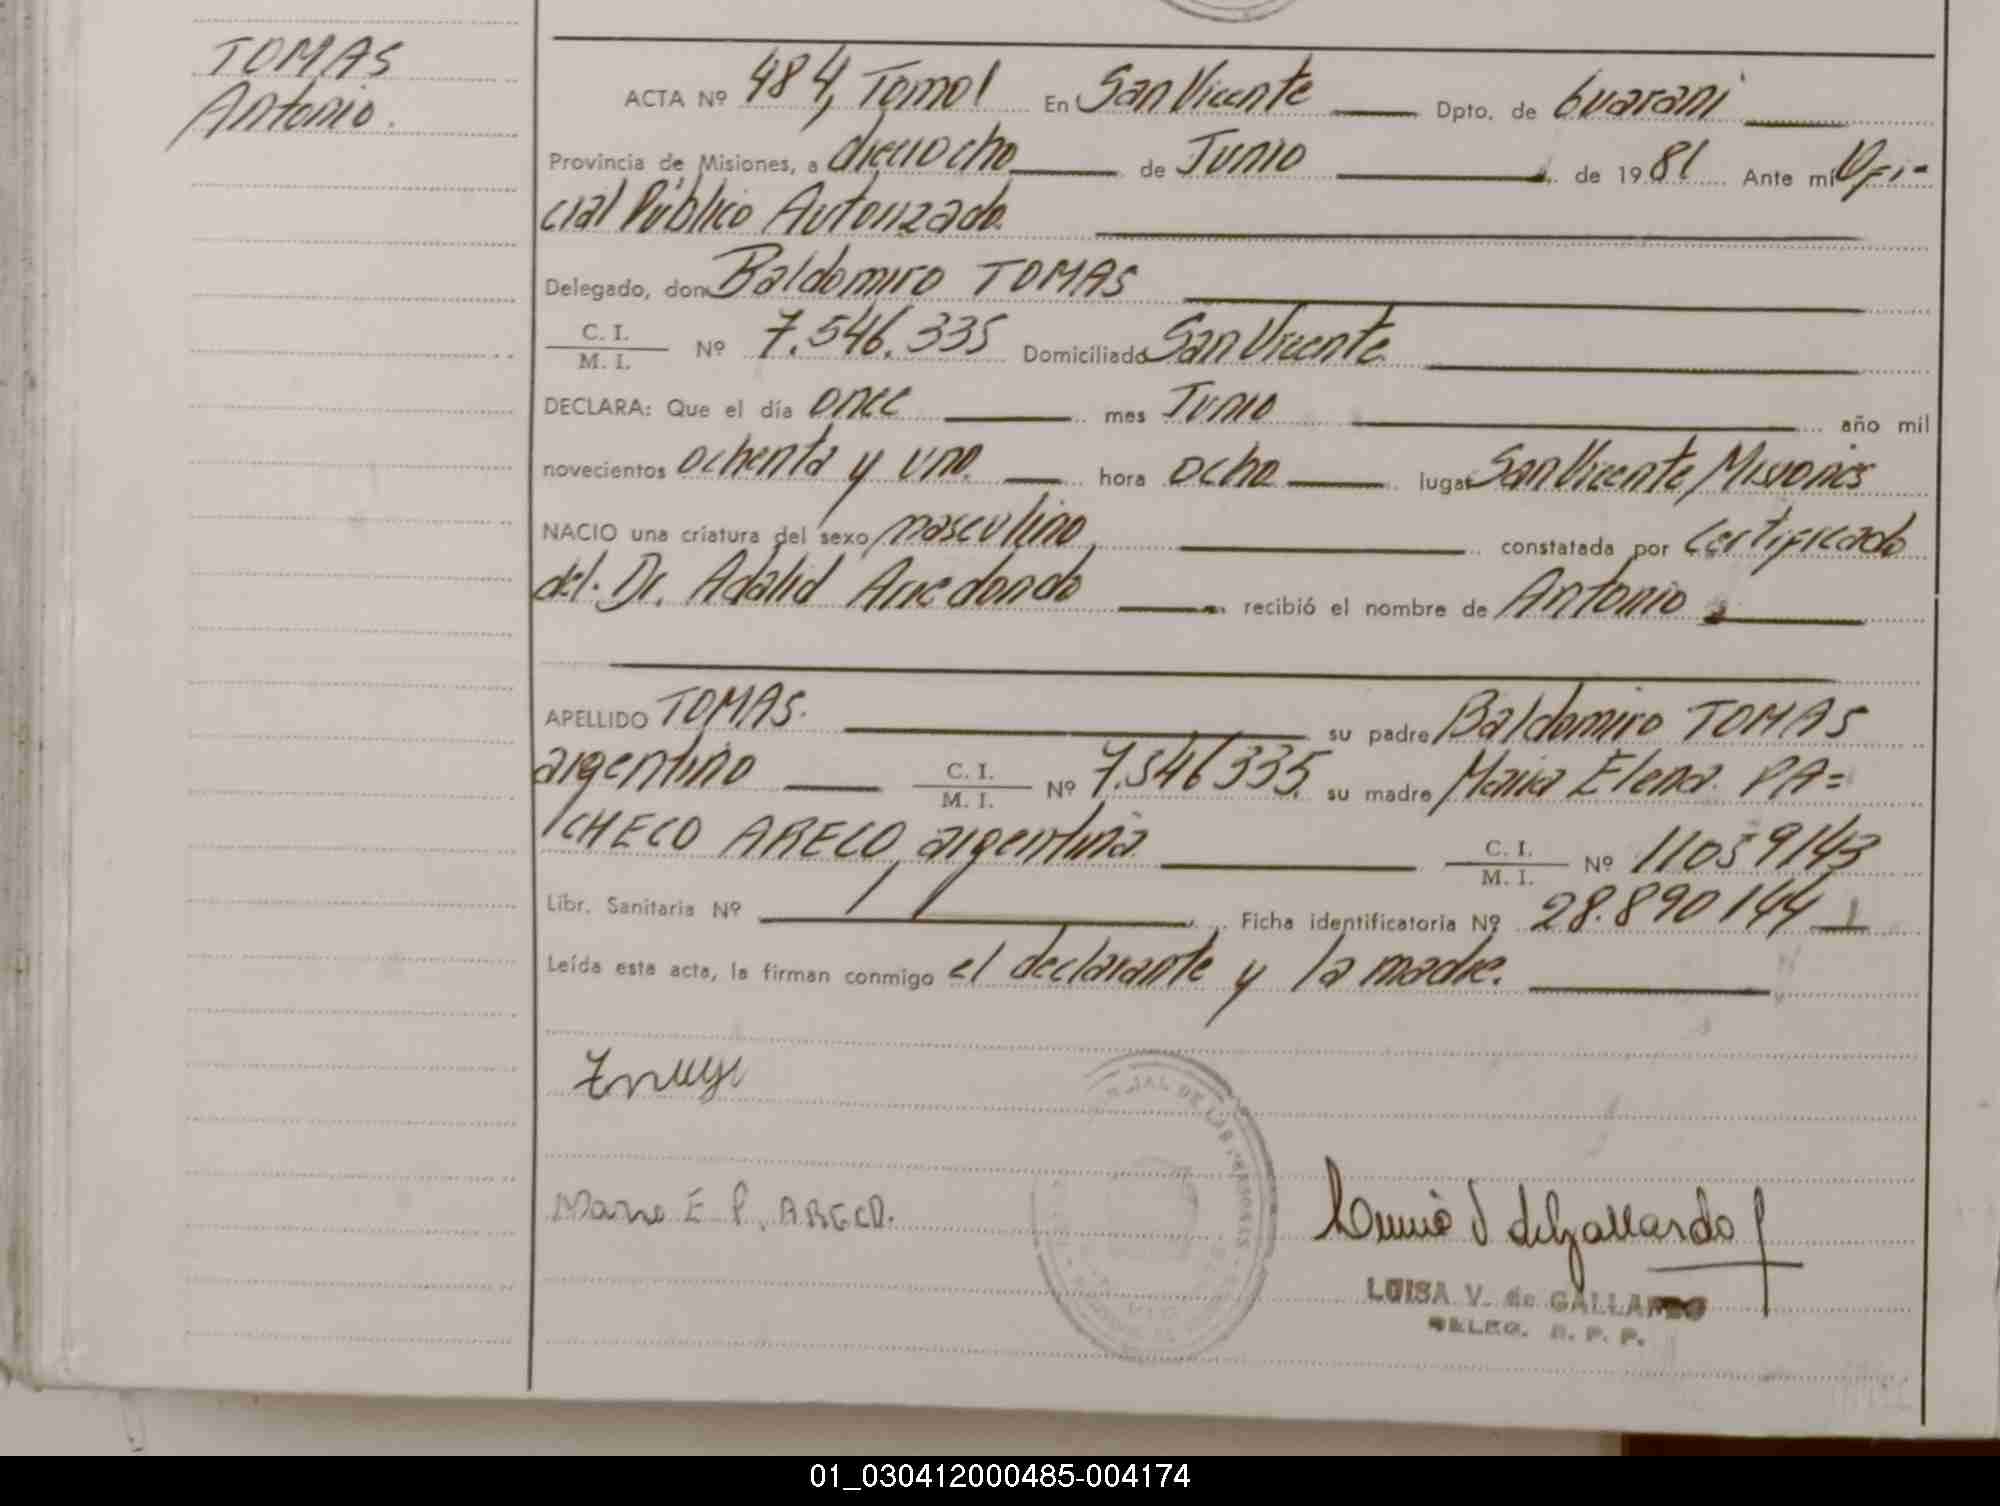 TOMAS
Antonio.
ACTA Nº 484, Tomo I En San Vicente Dpto. de Guarani
Provincia de Misiones, a dieciocho de Junio de 1981 Ante mí Ofi-
cial Público Autorizado.
Delegado, don Baldomiro TOMAS
C. I. / M. I. Nº 7.546.335 Domiciliado San Vicente.
DECLARA: Que el día once mes Junio año mil
novecientos ochenta y uno. hora ocho lugar San Vicente, Misiones
NACIO una criatura del sexo masculino, constatada por Certificado
del. Dr. Adalid Arredondo recibió el nombre de Antonio
APELLIDO TOMAS. su padre Baldomiro TOMAS
argentino C. I. / M. I. Nº 7.546335. su madre Maria Elena. PA=
CHECO ARECO, argentina. C. I. / M. I. Nº 11059143
Libr. Sanitaria Nº Ficha identificatoria Nº 28.890144
Leída esta acta, la firman conmigo el declarante y la madre.
Maria E P. ARECO.
V de Gallardo
LUISA V. de GALLARDO
DELEG. R. P. P.
01_030412000485-004174